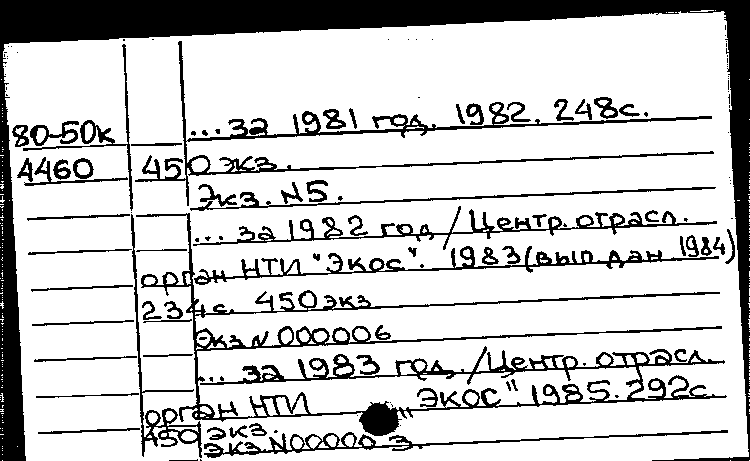 80-50к ... за 1981 год. 1982. 248с.
4460 450 экз.
Экз. N5.
... за 1982 год / Центр. отрасл.
орган НТИ "Экос". 1983 (вып дан 1984)
234с. 450экз
Экз N 000006
... за 1983 год. / Центр. отрасл.
орган НТИ „ЭКОС" 1985. 292с.
450 экз.
экз. N00000 3.